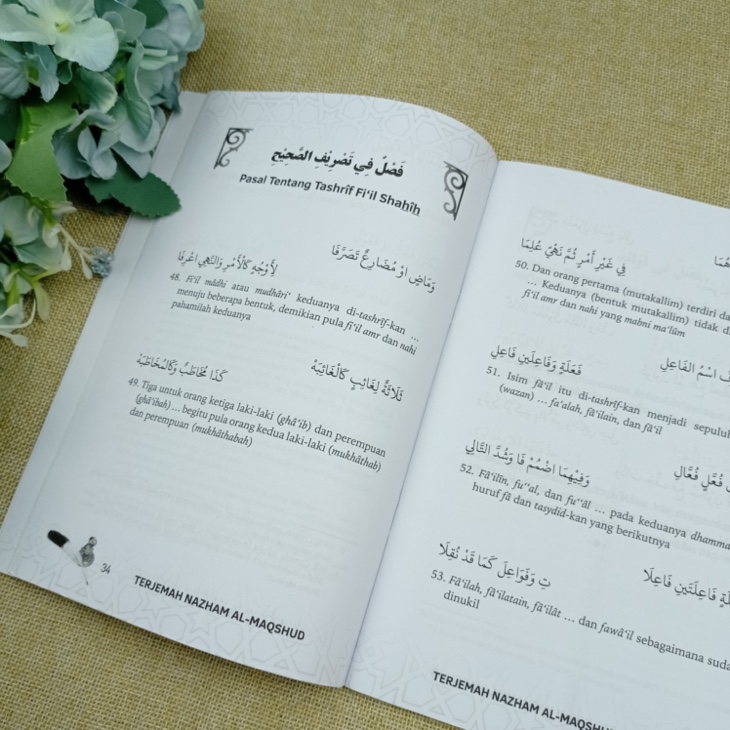 فَصْلٌ فِي تَصْرِيْفِ الصَّحِيْحِ
Pasal Tentang Tashrîf Fi'il Shahîh
وَمَاضٍ اوْ مُضَارِعٌ تَصَرَّفَا
لِأَوْجُهٍ كَالْأَمْرِ وَالنَّهْيِ اعْرِفَا
48. Fi'il mâdhi atau mudhâri' keduanya di-tashrîf-kan ...
menuju beberapa bentuk, demikian pula fi'il amr dan nahi
pahamilah keduanya
ثَلَاثَةٌ لِغَائِبٍ كَالْغَائِبَهْ
كَذَا مُخَاطَبٌ وَكَالْمُخَاطَبَهْ
49. Tiga untuk orang ketiga laki-laki (ghâ'ib) dan perempuan
(ghâ'ibah) ... begitu pula orang kedua laki-laki (mukhâthab)
dan perempuan (mukhâthabah)
34
TERJEMAH NAZHAM AL-MAQSHUD
فِي غَيْرِ أَمْرٍ ثُمَّ نَهْيٍ عُلِمَا
50. Dan orang pertama (mutakallim) terdiri
... Keduanya (bentuk mutakallim) tidak
fi'il amr dan nahi yang mabni ma'lûm
اسْمُ الفَاعِلِ
فَعَلَةٍ وَفَاعِلَيْنِ فَاعِلِ
51. Isim fâ'il itu di-tashrîf-kan menjadi
(wazan) ... fa'alah, fâ'ilain, dan fâ'il
فُعَّلٍ فُعَّالِ
وَفِيْهِمَا اضْمُمْ فَا وَشُدَّ التَّالِي
52. Fâ'ilîn, fu''al, dan fu''âl ... pada keduanya
huruf fâ dan tasydid-kan yang berikutnya
فَاعِلَتَيْنِ فَاعِلَا
تٍ وَفَوَاعِلَ كَمَا قَدْ نُقِلَا
53. Fâ'ilah, fâ'ilatain, fâ'ilât ... dan fawâ'il sebagaimana
dinukil
TERJEMAH NAZHAM